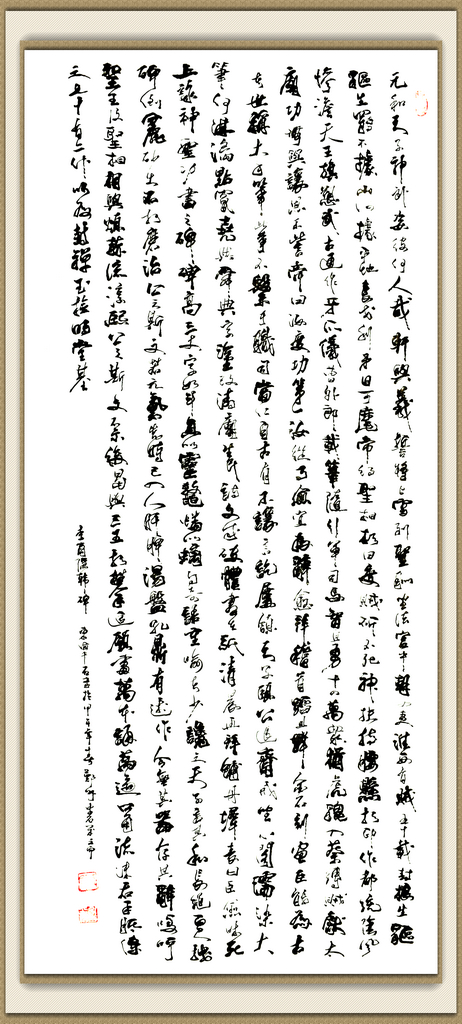 元和天子神武姿彼何人哉軒與羲誓將上雪列聖恥坐法宮中朝四夷淮西有賊五十載封狼生貙
貙生羆不據山河據平地長戈利矛日可麾帝得聖相相曰度賊斫不死神扶持腰懸相印作都統陰風
慘澹天王旗愬武古通作牙爪儀曹外郎載筆隨行軍司馬智且勇十四萬眾猶虎貔入蔡縛賊獻太
廟功無與讓恩不訾帝曰汝度功第一汝從事愈宜為辭愈拜稽首蹈且舞金石刻畫臣能為古
者世稱大手筆此事不繫于職司當仁自古有不讓言訖屢頷天子頤公退齋戒坐小閣濡染大
筆何淋漓點竄堯典舜典字塗改清廟生民詩文成破體書在紙清晨再拜鋪丹墀表曰臣愈昧死
上詠神聖功書之碑碑高三丈字如斗負以靈鼇蟠以螭句奇語重喻者少讒之天子言其私長繩百尺拽
碑倒麤砂大石相磨治公之斯文若元氣先時已入人肝脾湯盤孔鼎有述作今無其器存其辭嗚呼
聖王及聖相相與烜赫流淳熙公之斯文不示後曷與三五相攀追願書萬本誦萬過口角流沫右手胝傳
之七十有二代以為封禪玉檢明堂基
李商隱韓碑